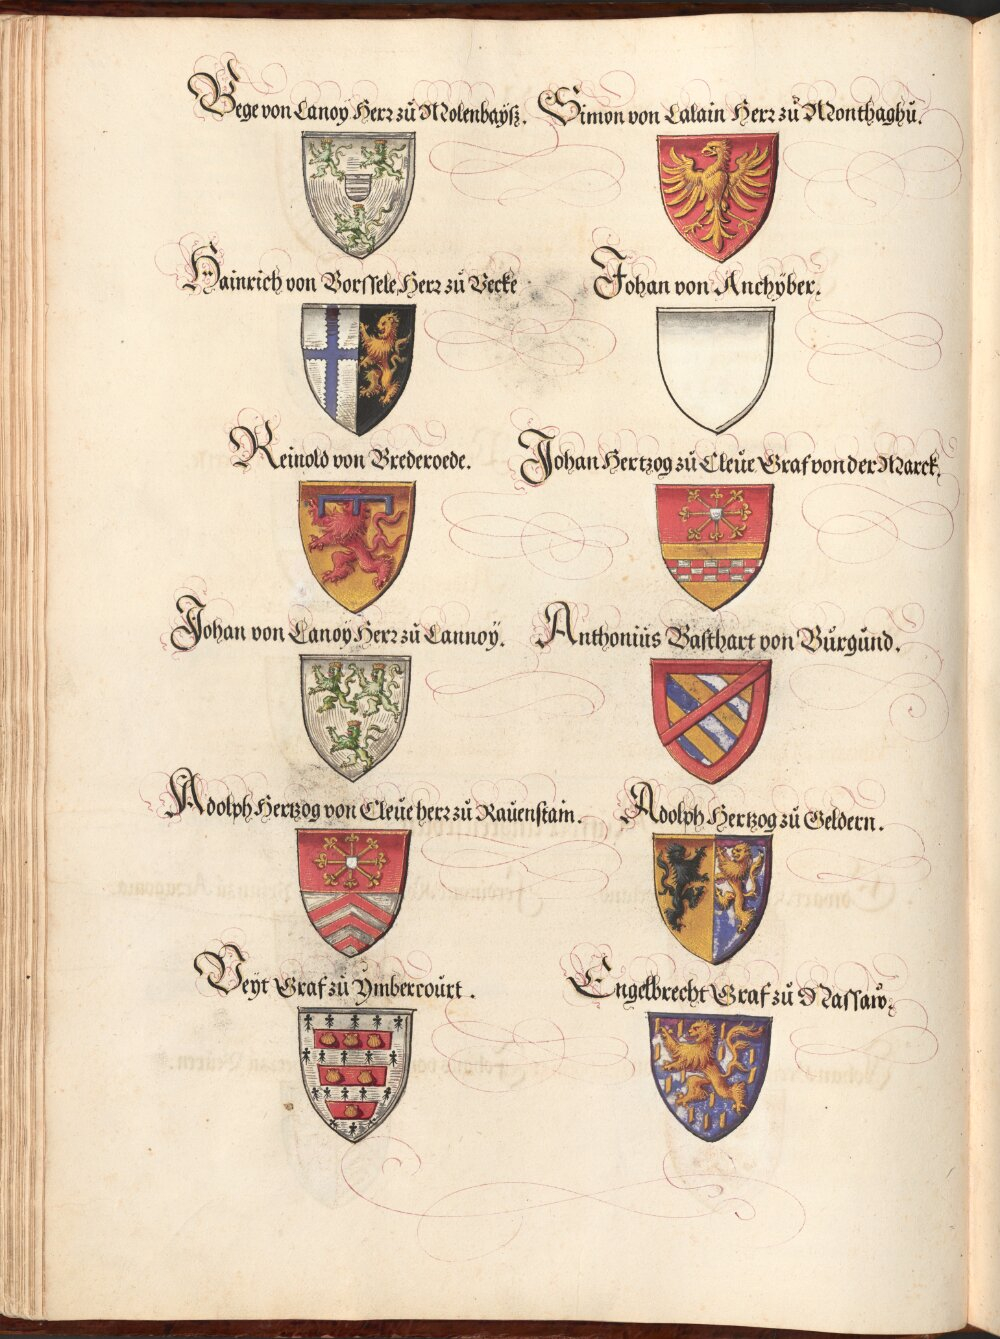 Bege von Lanoÿ Herr zů Molenbaÿß.
Simon von Lalain Herr zů Monthaghů.
Hainrich von Borssele Herr zů Vecke
Johan von Anchÿber.
Reinold von Brederoede.
Johan Hertzog zů Cleůe Graf von der Marck.
Johan von Lanoÿ Herr zů Lannoÿ.
Anthoniůs Basthart von Bůrgůnd.
Adolph Hertzog von Cleůe herr zů Raůenstain.
Adolph Hertzog zů Geldern.
Veÿt Graf zů Ÿmbercoůrt.
Engelbrecht Graf zů Nassaw.